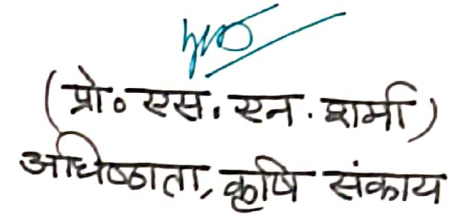 (प्रो० एस. एन. शर्मा)
अधिष्ठाता, कृषि संकाय